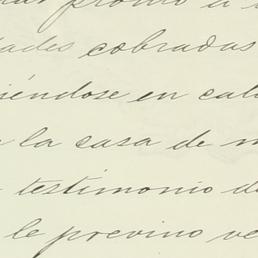 promo a
dades cobradas
iéndose en cal
la casa de m
testimonio de
le previno ve